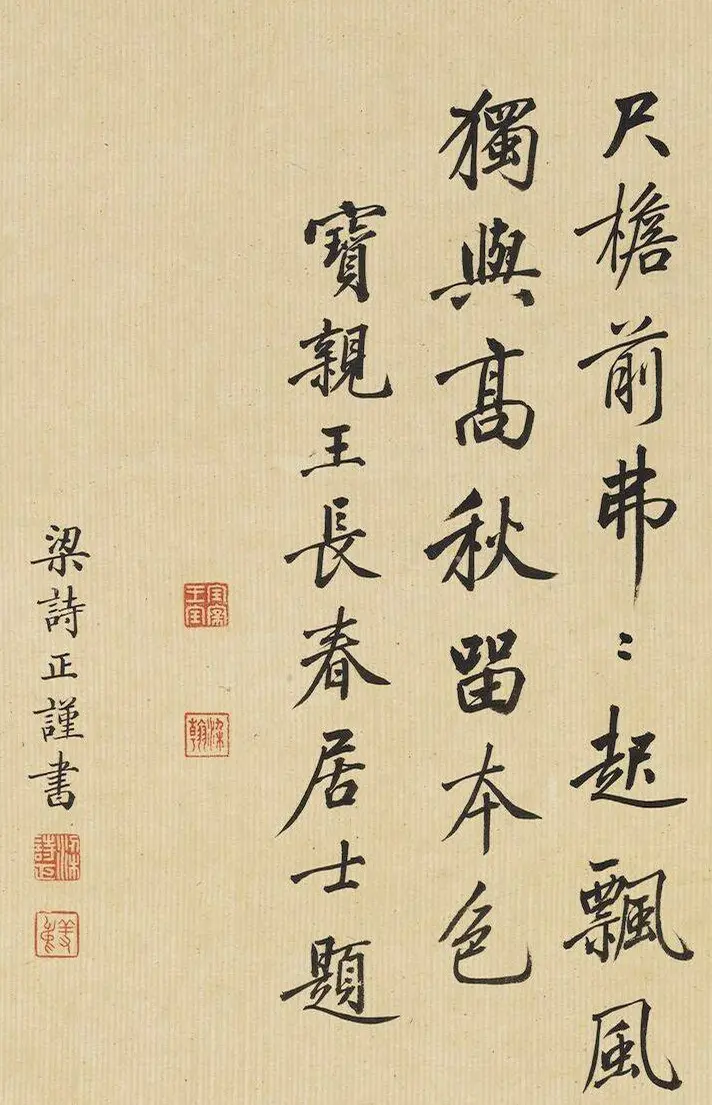 尺檐前弗〻起飄風
獨與髙秋留本色
寶親王長春居士題
梁詩正謹書
染翰